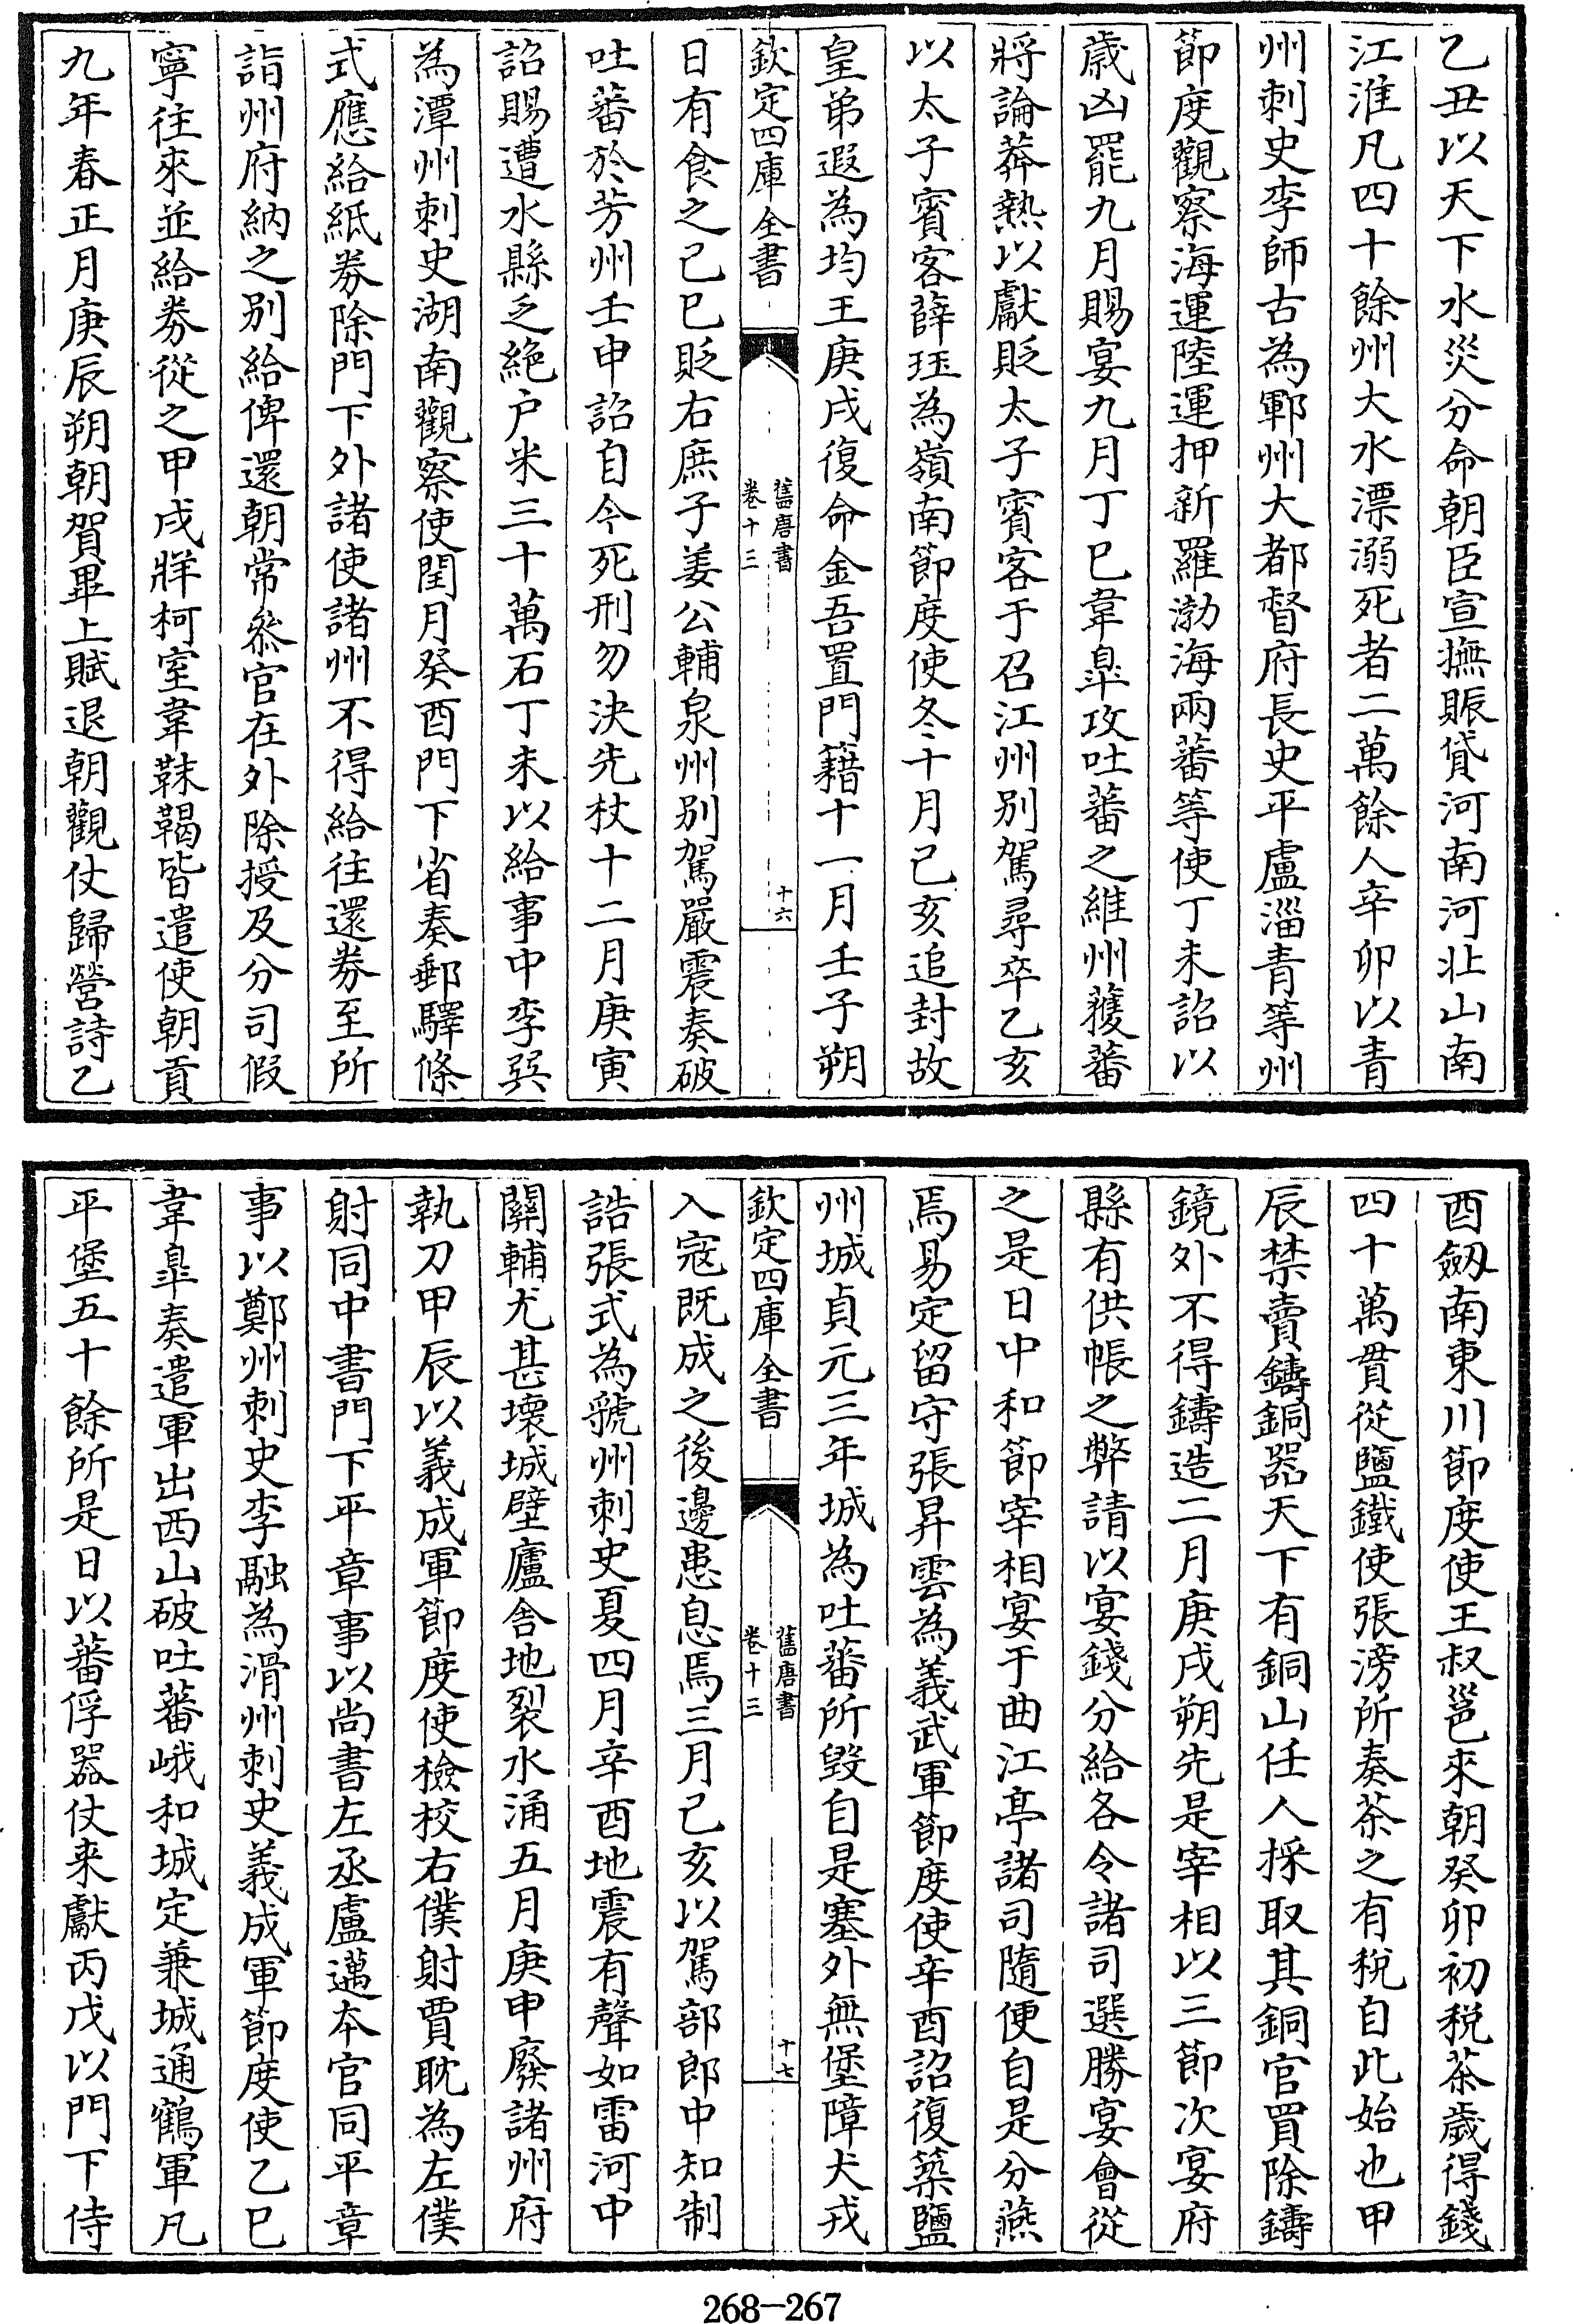 乙丑以天下水災分命朝臣宣撫賑貸河南河北山南
江淮凡四十餘州大水漂溺死者二萬餘人辛卯以青
州刺史李師古為鄆州大都督府長史平盧淄青等州
節度觀察海運陸運押新羅渤海兩蕃等使丁未詔以
歲凶罷九月賜宴九月丁巳韋臯攻吐蕃之維州獲蕃
將論莽熱以獻貶太子賓客于召江州別駕尋卒乙亥
以太子賓客薛珏為嶺南節度使冬十月己亥追封故
皇弟遐為均王庚戌復命金吾置門籍十一月壬子朔
欽定四庫全書
舊唐書
卷十三
十六
日有食之己巳貶右庶子姜公輔泉州別駕嚴震奏破
吐蕃於芳州壬申詔自今死刑勿決先杖十二月庚寅
詔賜遭水縣乏絶户米三十萬石丁未以給事中李巽
為潭州刺史湖南觀察使閏月癸酉門下省奏郵驛條
式應給紙券除門下外諸使諸州不得給往還券至所
詣州府納之別給俾還朝常叅官在外除授及分司假
寧往來並給券從之甲戌牂柯室韋靺鞨皆遣使朝貢
九年春正月庚辰朔朝賀畢上賦退朝觀仗歸營詩乙
酉劔南東川節度使王叔邕來朝癸卯初稅茶歲得錢
四十萬貫從鹽鐵使張滂所奏茶之有稅自此始也甲
辰禁賣鑄銅器天下有銅山任人採取其銅官買除鑄
鏡外不得鑄造二月庚戌朔先是宰相以三節次宴府
縣有供帳之弊請以宴錢分給各令諸司選勝宴會從
之是日中和節宰相宴于曲江亭諸司隨便自是分燕
焉易定留守張昇雲為義武軍節度使辛酉詔復築鹽
州城貞元三年城為吐蕃所毀自是塞外無堡障犬戎
欽定四庫全書
舊唐書
卷十三
十七
入寇既成之後邊患息焉三月己亥以駕部郎中知制
誥張式為虢州刺史夏四月辛酉地震有聲如雷河中
關輔尤甚壞城壁廬舍地裂水涌五月庚申廢諸州府
執刀甲辰以義成軍節度使檢校右僕射賈耽為左僕
射同中書門下平章事以尚書左丞盧邁本官同平章
事以鄭州刺史李融為滑州刺史義成軍節度使乙巳
韋臯奏遣軍出西山破吐蕃峨和城定兼城通鶴軍凡
平堡五十餘所是日以蕃俘器仗来獻丙戌以門下侍
268—267